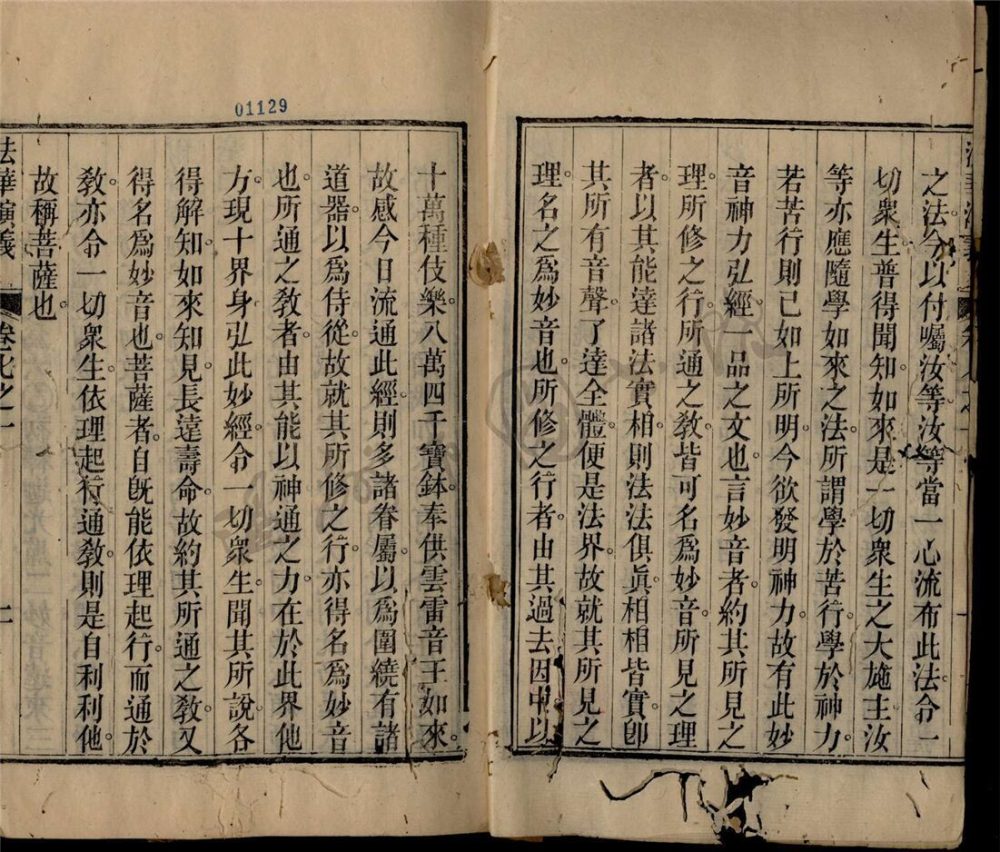 之法今以付囑汝等汝等當一心流布此法令一
切衆生普得聞知如來是一切衆生之大施主汝
等亦應隨學如來之法所謂學於苦行學於神力
若苦行則已如上所明今欲發明神力故有此妙
音神力弘經一品之文也言妙音者約其所見之
理所修之行所通之教皆可名爲妙音所見之理
者以其能達諸法實相則法法俱眞相相皆實卽
其所有音聲了達全體便是法界故就其所見之
理名之爲妙音也所修之行者由其過去因中以
十萬種伎樂八萬四千寶鉢奉供雲雷音王如來
故感今日流通此經則多諸眷屬以爲圍繞有諸
道器以爲侍從故就其所修之行亦得名爲妙音
也所通之教者由其能以神通之力在於此界他
方現十界身弘此妙經令一切衆生聞其所說各
得解知如來知見長遠壽命故約其所通之教又
得名爲妙音也菩薩者自旣能依理起行而通於
教亦令一切衆生依理起行通教則是自利利他
故稱菩薩也
法華演義 卷七之一
01129